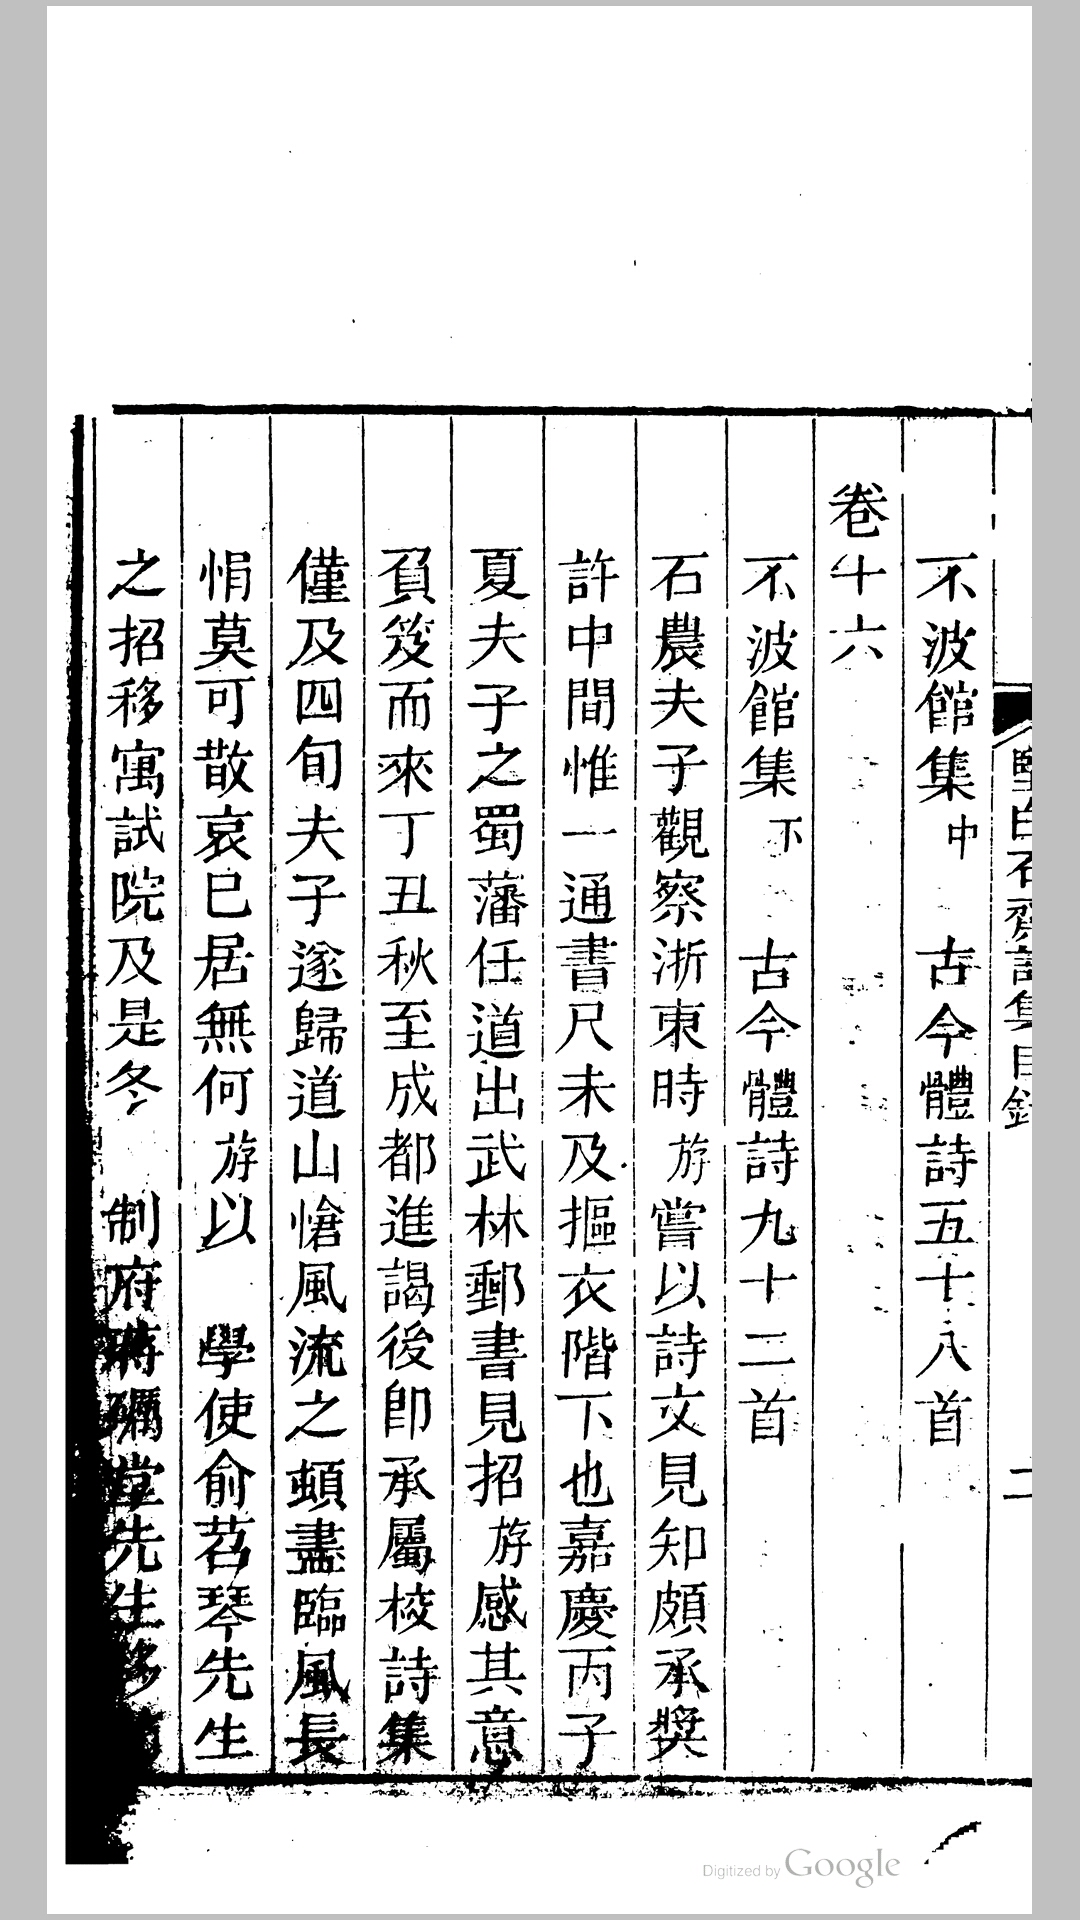 堅白石齋詩集目錄
二
不波館集中 古今體詩五十八首
卷十六
不波館集下 古今體詩九十二首
石農夫子觀察浙東時游嘗以詩文見知頗承獎
許中間惟一通書尺未及摳衣階下也嘉慶丙子
夏夫子之蜀藩任道出武林郵書見招游感其意
負笈而來丁丑秋至成都進謁後卽承屬校詩集
僅及四旬夫子遂歸道山愴風流之頓盡臨風長
悁莫可散哀已居無何游以 學使俞苕琴先生
之招移寓試院及是冬 制府蔣礪堂先生移
Digitized by Google